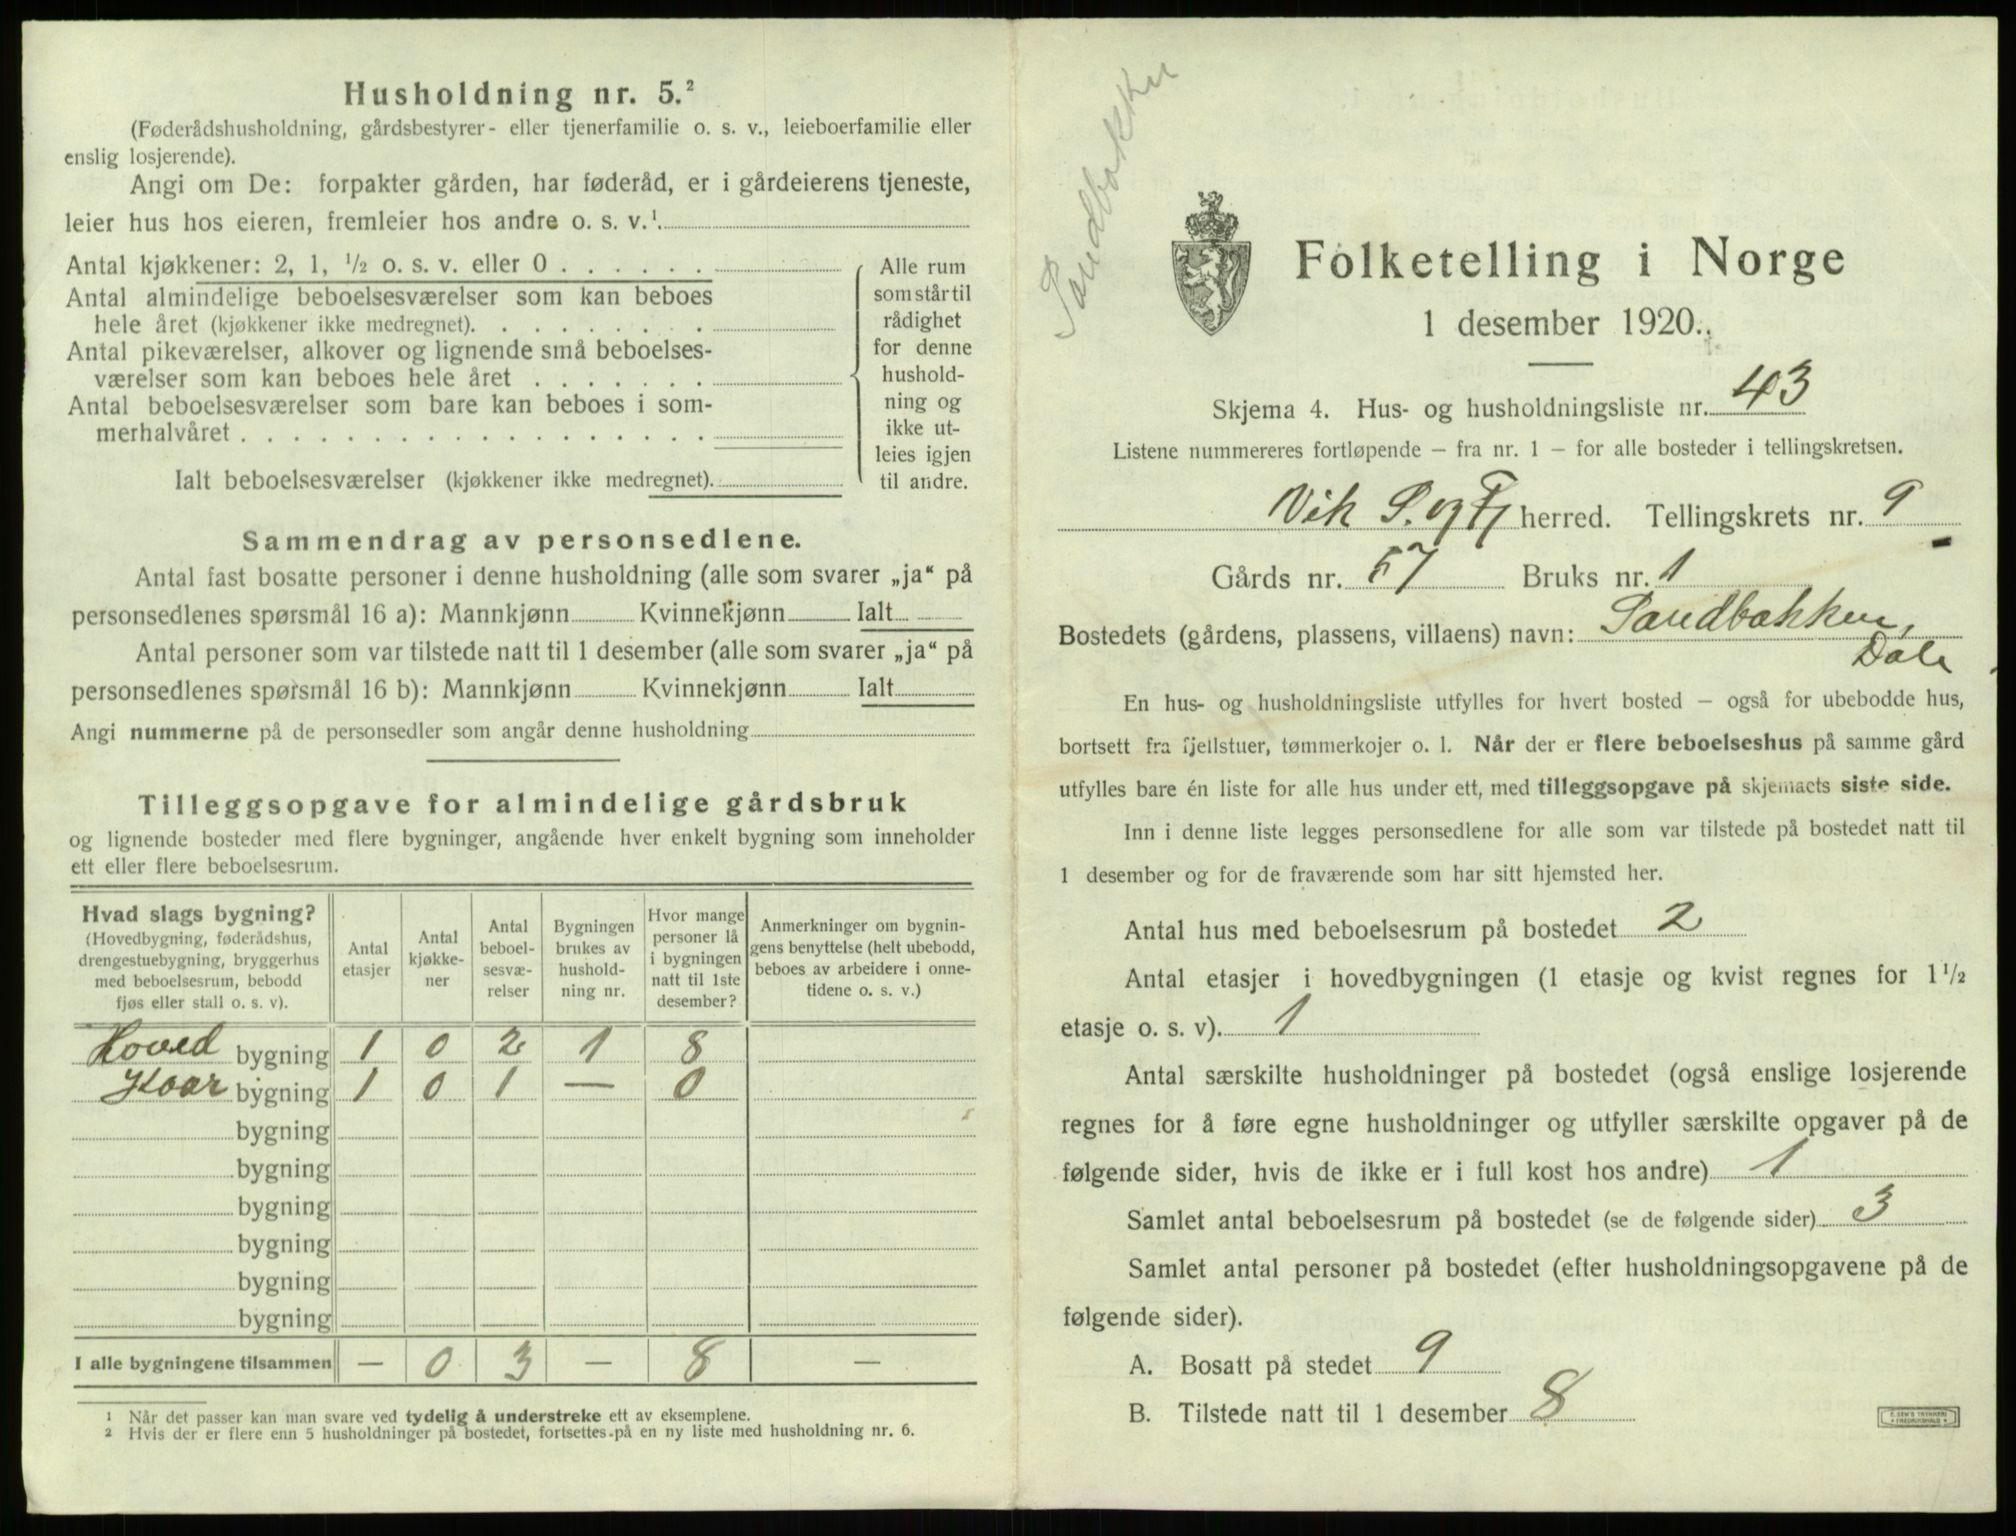 Husholdning nr. 5.²
(Føderådshusholdning, gårdsbestyrer- eller tjenerfamilie o. s. v., leieboerfamilie eller
enslig losjerende).
Angi om De: forpakter gården, har føderåd, er i gårdeierens tjeneste,
leier hus hos eieren, fremleier hos andre o. s. v.¹.
Antal kjøkkener: 2, 1, ½ o. s. v. eller 0 . . . . . .
Antal almindelige beboelsesværelser som kan beboes
hele året (kjøkkener ikke medregnet). . . . . . . . .
Antal pikeværelser, alkover og lignende små beboelses-
værelser som kan beboes hele året . . . . . . .
Antal beboelsesværelser som bare kan beboes i som-
merhalvåret . . . . . . . . . . . . . . . . . .
Alle rum
som står til
rådighet
for denne
hushold-
ning og
ikke ut-
leies igjen
til andre.
Ialt beboelsesværelser (kjøkkener ikke medregnet).
Sammendrag av personsedlene.
Antal fast bosatte personer i denne husholdning (alle som svarer „ja“ på
personsedlenes spørsmål 16 a): Mannkjønn Kvinnekjønn Ialt
Antal personer som var tilstede natt til 1 desember (alle som svarer „ja“ på
personsedlenes spørsmål 16 b): Mannkjønn Kvinnekjønn Ialt
Angi nummerne på de personsedler som angår denne husholdning
Tilleggsopgave for almindelige gårdsbruk
og lignende bosteder med flere bygninger, angående hver enkelt bygning som inneholder
ett eller flere beboelsesrum.
Hvad slags bygning?
(Hovedbygning, føderådshus,
drengestuebygning, bryggerhus
med beboelsesrum, bebodd
fjøs eller stall o. s. v).
Antal
etasjer
Antal
kjøkke-
ner
Antal
beboel-
sesvæ-
relser
Bygningen
brukes av
hushold-
ning nr.
Hvor mange
personer lå
i bygningen
natt til 1ste
desember?
Anmerkninger om bygnin-
gens benyttelse (helt ubebodd,
beboes av arbeidere i onne-
tidene o. s. v.)
Hoved bygning 1 0 2 1 8
bygning 1 0 1 — 0
bygning
bygning
bygning
bygning
bygning
bygning
I alle bygningene tilsammen — 0 3 — 8 —
¹ Når det passer kan man svare ved tydelig å understreke ett av eksemplene.
² Hvis der er flere enn 5 husholdninger på bostedet, fortsettes på en ny liste med husholdning nr. 6.
Sandbakken
Folketelling i Norge
1 desember 1920.
Skjema 4. Hus- og husholdningsliste nr. 43
Listene nummereres fortløpende — fra nr. 1 — for alle bosteder i tellingskretsen.
Vik S. og Fj herred. Tellingskrets nr. 9
Gårds nr. 57 Bruks nr. 1
Bostedets (gårdens, plassens, villaens) navn: Sandbakken,
Dale
En hus- og husholdningsliste utfylles for hvert bosted — også for ubebodde hus,
bortsett fra fjellstuer, tømmerkojer o. l. Når der er flere beboelseshus på samme gård
utfylles bare én liste for alle hus under ett, med tilleggsopgave på skjemaets siste side.
Inn i denne liste legges personsedlene for alle som var tilstede på bostedet natt til
1 desember og for de fraværende som har sitt hjemsted her.
Antal hus med beboelsesrum på bostedet 2
Antal etasjer i hovedbygningen (1 etasje og kvist regnes for 1½
etasje o. s. v). 1
Antal særskilte husholdninger på bostedet (også enslige losjerende
regnes for å føre egne husholdninger og utfyller særskilte opgaver på de
følgende sider, hvis de ikke er i full kost hos andre) 1
Samlet antal beboelsesrum på bostedet (se de følgende sider) 3
Samlet antal personer på bostedet (efter husholdningsopgavene på de
følgende sider).
A. Bosatt på stedet 9
B. Tilstede natt til 1 desember 8